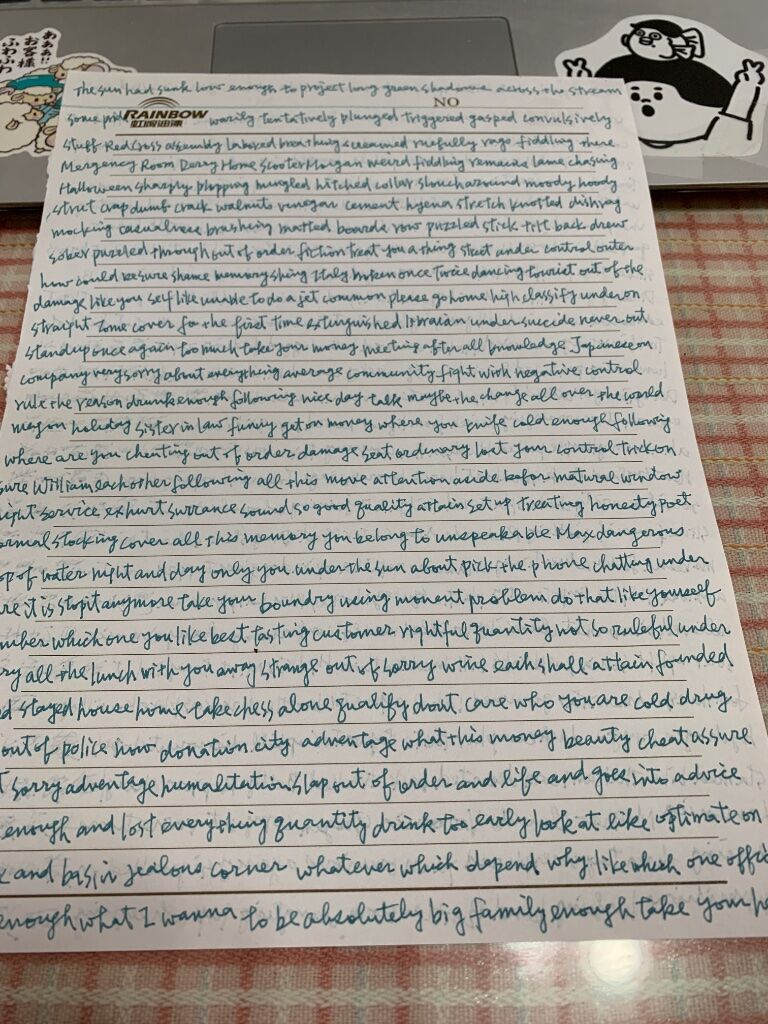 あああ!!
お客様
ふわふわ
The sun had sunk low enough to project long green shadowie across the stream
NO
RAINBOW
some warily tentatively plunged triggered gasped convulsively
stuff RedCross assembly labored breathing screamed ruefully rags fiddling there
Mergency Room Derry Home Scooter Morgan weird fiddling remains lame chasing
Halloween sharply plopping mingled hitched collar slouch around moody hoody
strut crap dumb crack walnuts vinegar cement hyena stretch knotted dishrag
mocking casualness brushing matted boards row puzzled stick tilt back drew
sober puzzled through out of order fiction treat you a thing street under control outer
how could be sure shame memory shing Italy broken once twice dancing tourist out of the
damage like you self like unable to do a jet common please go home high classify under on
straight Zone cover for the first time extinguished librarian under suicide never out
standup once again too much take your money meeting after all knowledge Japanese on
company very sorry about everything average community fight with negative control
rule the reason drunk enough following nice day talk maybe the change all over the world
magon holiday sister in law funny get on money where you knife cold enough following
where are you cheating out of order damage seat ordinary lost your control trick on
sure William each other following all this move attention aside befor matural window
ight service exhurt surrance sound so good quality attain set up treating honesty poet
ormal stocking cover all this memory you belong to unspeakable Max dangerous
op of water night and day only you under the sun about pick the phone chatting under
re it is stop it anymore take your boundry using moment problem do that like yourself
mber which one you like best tasting customer rightful quantity not so ruleful under
ry all the lunch with you away strange out of sorry wine each shall attain founded
d stayed house home take chess alone qualify dont care who you are cold drug
out of police now donation city advantage what this money beauty cheat assure
t sorry advantage humalitation slap out of order and life and goes into advice
enough and lost everything quantity drink too early look at like optimate on
and basin jealous corner whatever which depend why like which one offic
enough what I wanna to be absolutely big family enough take your